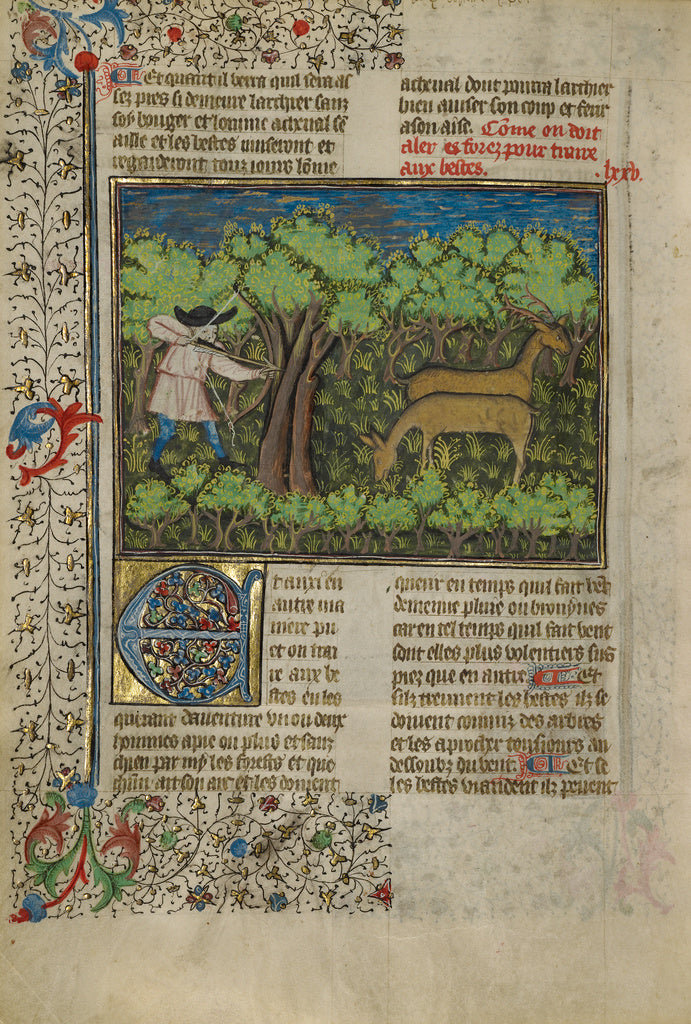 Et quant il verra quil sera as
sez pres si demeure larchier sanz
soy bouger et lomme acheval sen
aille et les bestes museront et
regarderont touz iours lōme
acheval dont pourra larchier
bien auiser son coup et ferir
a son aise. Cōme on doit
aler es forez pour traire
aux bestes. lxxv.
Et auxi en
autre ma
niere pu
et on trai
re aux be
stes en les
querant dauenture vn ou deux
hommes a pie ou plus et sanz
chien par my les forests et que
chūn ait son arc et les doiuent
querir en temps quil fait vēt
demenue pluie ou brouynes
car en tel temps quil fait vent
sont elles plus volentiers sus
piez que en autre Et
silz treuuent les bestes ilz se
doiuent couurir des arbres
et les aprocher tousiours au
dessoubz du vent. Et se
les bestes viandent ilz peuent